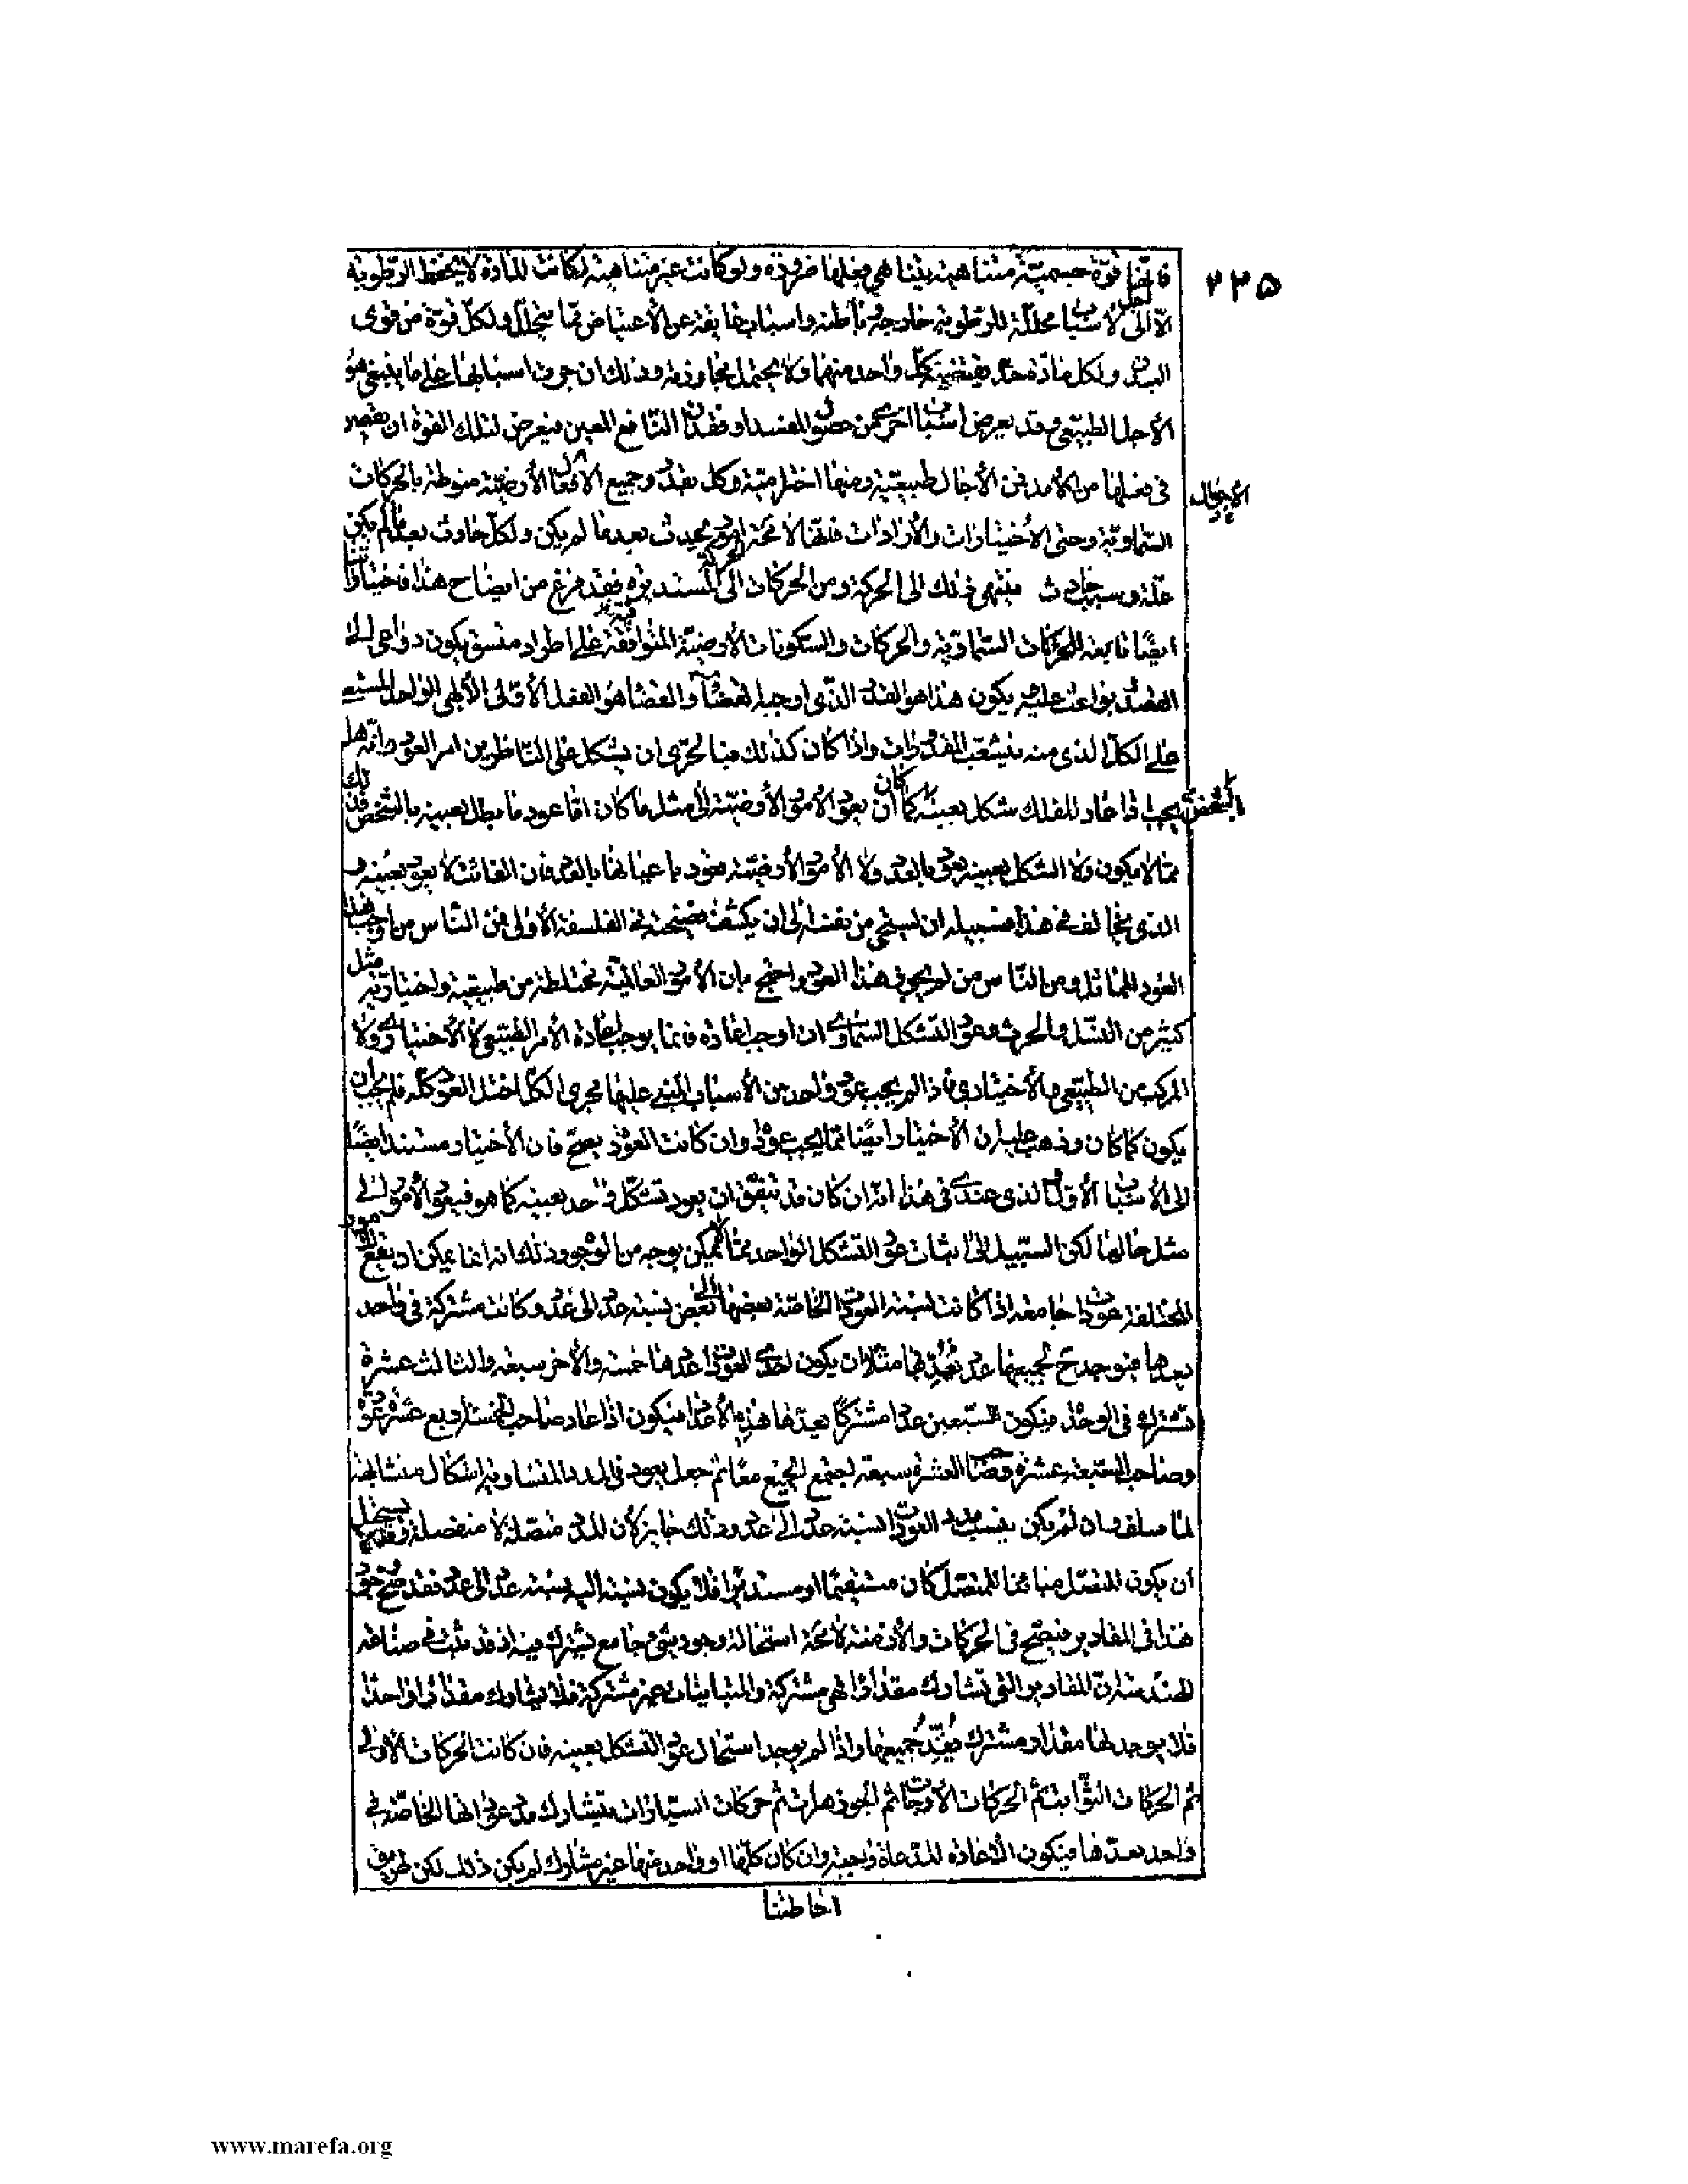 ٢٢٥
فانها قوة جسمية متناهية يتناهى فعلها ضرورة ولو كانت غير متناهية لكانت المادة لا تحفظ الرطوبة
الا الى اجل لاسباب محللة للرطوبة خارجة وباطنة واسباب عايقة عن الاعتياض مما يتحلل ولكل قوة من قوى
البدن ولكل مادة حد يقتضيه كل واحد منهما ولا يحتمل مجاوزته وذلك ان جرت اسبابها على ما ينبغي هو
الاجل الطبيعي وقد يعرض اسباب اخرى من حصول المفسد او فقدان النافع المعين فيعرض لتلك القوة ان يقصر
في فعلها من الامد فمن الاجال طبيعية ومنها اخترامية وكل بقدر وجميع الاحوال الارضية منوطة بالحركات
الاحوال
السماوية وحتى الاختيارات والارادات فانها لا محة امور يحدث بعد ما لم يكن ولكل حادث بعد ما لم يكن
علة وسبب حادث فينتهي ذلك الى الحركة ومن الحركات الى الحركة المستديرة فقد فرغ من ايضاح هذا فاختياراتنا
ايضا تابعة للحركات السماوية والحركات والسكونات الارضية المتوافقة على اطراد متسق يكون دواعي الى
القصد وبواعث عليه يكون هذا هو القدر الذي اوجبه القضاء والقضاء هو الفعل الاولى الالهي الواحد المستعلي
على الكل الذي منه ينشعب المقدورات واذا كان كذلك فبالحرى ان يشكل على الناظرين امر العود وانه هل
يجب اذا عاد للفلك شكل بعينه كما كان ان يعود الامور الارضية الى مثل ما كان اما عود ما بطل بعينه بالشخص فذلك
بالشخص
مما لا يكون ولا الشكل بعينه يعود بالعدد ولا الامور الارضية تعود باعيانها بالعدد فان الفائت لا يعود بعينه و
الذي يخالف في هذا فسبيله ان يستحي من نفسه الى ان يكشف فضيحته في الفلسفة الاولى فمن الناس من اوجب هذا
العود المماثل ومن الناس من لم يجوز هذا العود واحتج بان الامور العالمية مختلطة من طبيعية واختيارية مثل
كثير من النسل والحرث وعود التشكل السماوي ان اوجب اعادة فانما يوجب اعادة الامر الطبيعي لا الاختياري ولا
المركب من الطبيعي والاختياري فاذا لم يجب عود واحد من الاسباب التي عليها مجرى الكل اختل العود كله فلم يجب ان
يكون كما كان وذهب عليه ان الاختيار ايضا مما يجب عوده وان كانت العود يصح فان الاختيار مستند ايضا
الى الاسباب الاول والذي عندي في هذا انه ان كان قد يتفق ان يعود تشكل واحد بعينه كما هو فيعود الامور الى
مثل حالها لكن السبيل الى اثبات عود التشكل الواحد مما لا يمكن بوجه من الوجوه وذلك انه انما يمكن ان يقع للامور
المختلفة عودات جامعة اذا كانت نسبة العودات الخاصة بعضها الى بعض نسبة عدد الى عدد وكانت مشتركة في واحد
يعدها فيوجد ح لجميعها عدد يعدها مثلا ان يكون احدى العودات اعدها خمسة والاخر سبعة والثالث عشرة
تشترك في الوحدة فيكون السبعين عددا مشتركا يعدها هذه الاعداد فيكون اذا عاد صاحب الخمسة اربع عشرة عودة
وصاحب السبعة عشرة وصاحب العشرة سبعة اجتمع الجميع معا ثم جعل يعود في المدد المتساوية اشكال متشابهة
لما سلف وان لم يكن نسب مدد العودات نسبة عدد الى عدد وذلك جايز لان المدد متصلة لا منفصلة فليس يستحيل
ان يكون المتصل مباينا للمتصل كان مستقيما او مستديرا فلا يكون نسبته اليه نسبة عدد الى عدد فقد صح وجود
هذا في المقادير فيصح في الحركات والازمنة لا محة استحالة وجود شيء جامع يشترك فيه اذ قد ثبت في صناعة
الهندسة ان المقادير التي تشارك مقدارا هي مشتركة والمتباينات غير مشتركة فلا يشارك مقدارا واحدا
فلا يوجد لها مقدار مشترك يعد جميعها واذا لم يوجد استحال عود التشكل بعينه فان كانت الحركات الاولى
ثم الحركات الثوابت ثم الحركات الاوجات ثم الجوزهرات ثم حركات السيارات يتشارك مدد عودها الخاصة في
واحد يعدها فيكون الاعادة المدعاة واجبة وان كان كلها او واحد منها غير مشارك لم يكن ذلك لكن طريق
احاطتنا
www.marefa.org